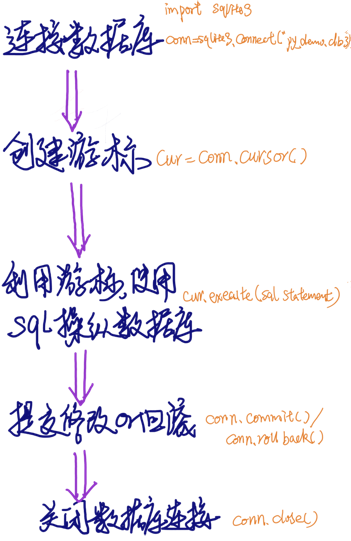 import sqlite3
连接数据库 conn=sqlite3.connect("yy_demo.db")
创建游标 cur = conn.cursor()
利用游标,使用
cur.execute(sql statement)
sql操纵数据库
提交修改or回滚 conn.commit() /
conn.rollback()
关闭数据库连接 conn.close()